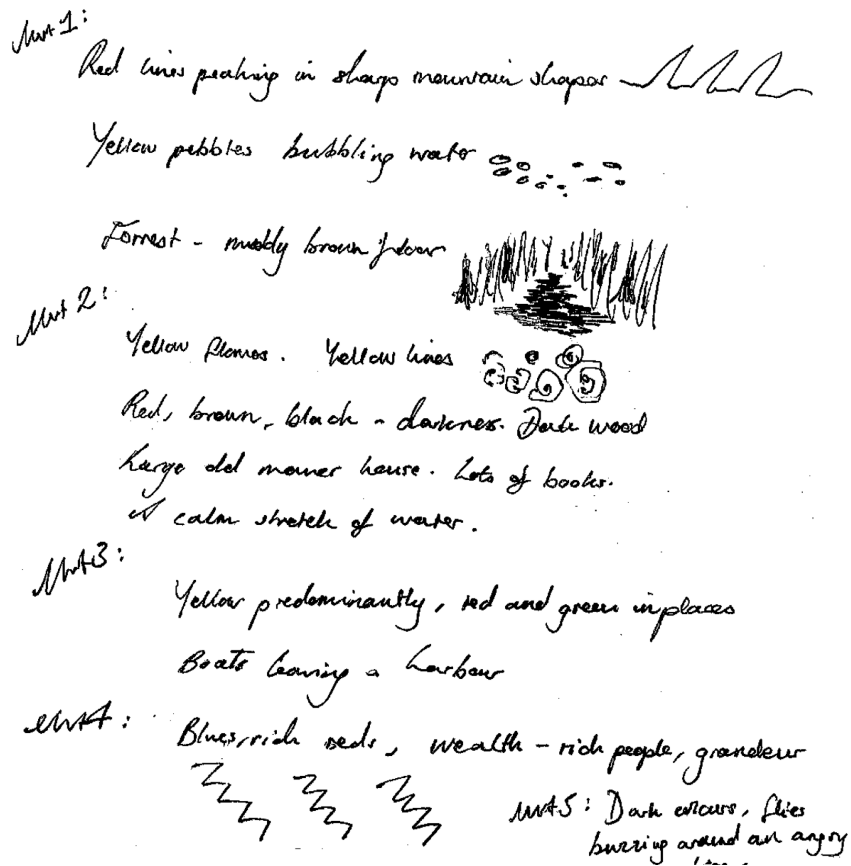 Mvt 1:
Red lines peaking in sharp mountain shapes
Yellow pebbles bubbling water
Forrest - muddy brown floor
Mvt 2:
Yellow flames. Yellow lines
Red, brown, black - darkness. Dark wood
Large old maner house. Lots of books.
A calm stretch of water.
Mvt3:
Yellow predominantly, red and green in places
Boats leaving a harbour
Mvt4:
Blues, rich reds, wealth - rich people, grandeur
Mvt5: Dark colours, flies
buzzing around an angry